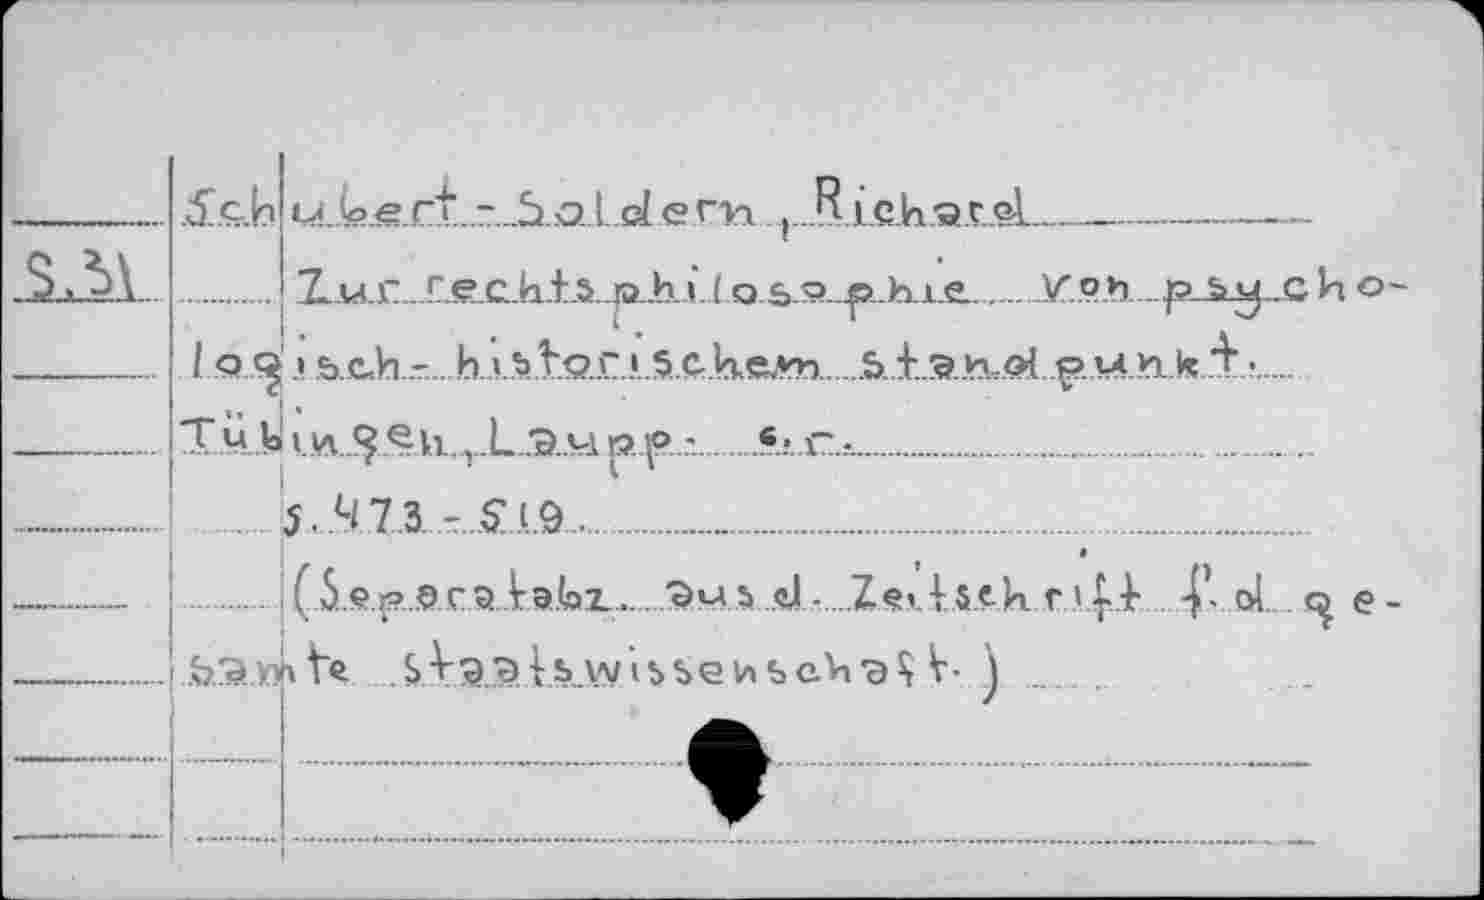 Schubert - Soldern, Richard
S.31
Zur rechtsphilosophie von psycho-
logisch - historischem standpunkt.
Tübingen, Laupp.
S. 473 - 519.
(Separatabz. aus d. Zeitschrift f. d ge-
samte staatswissenschaft.)